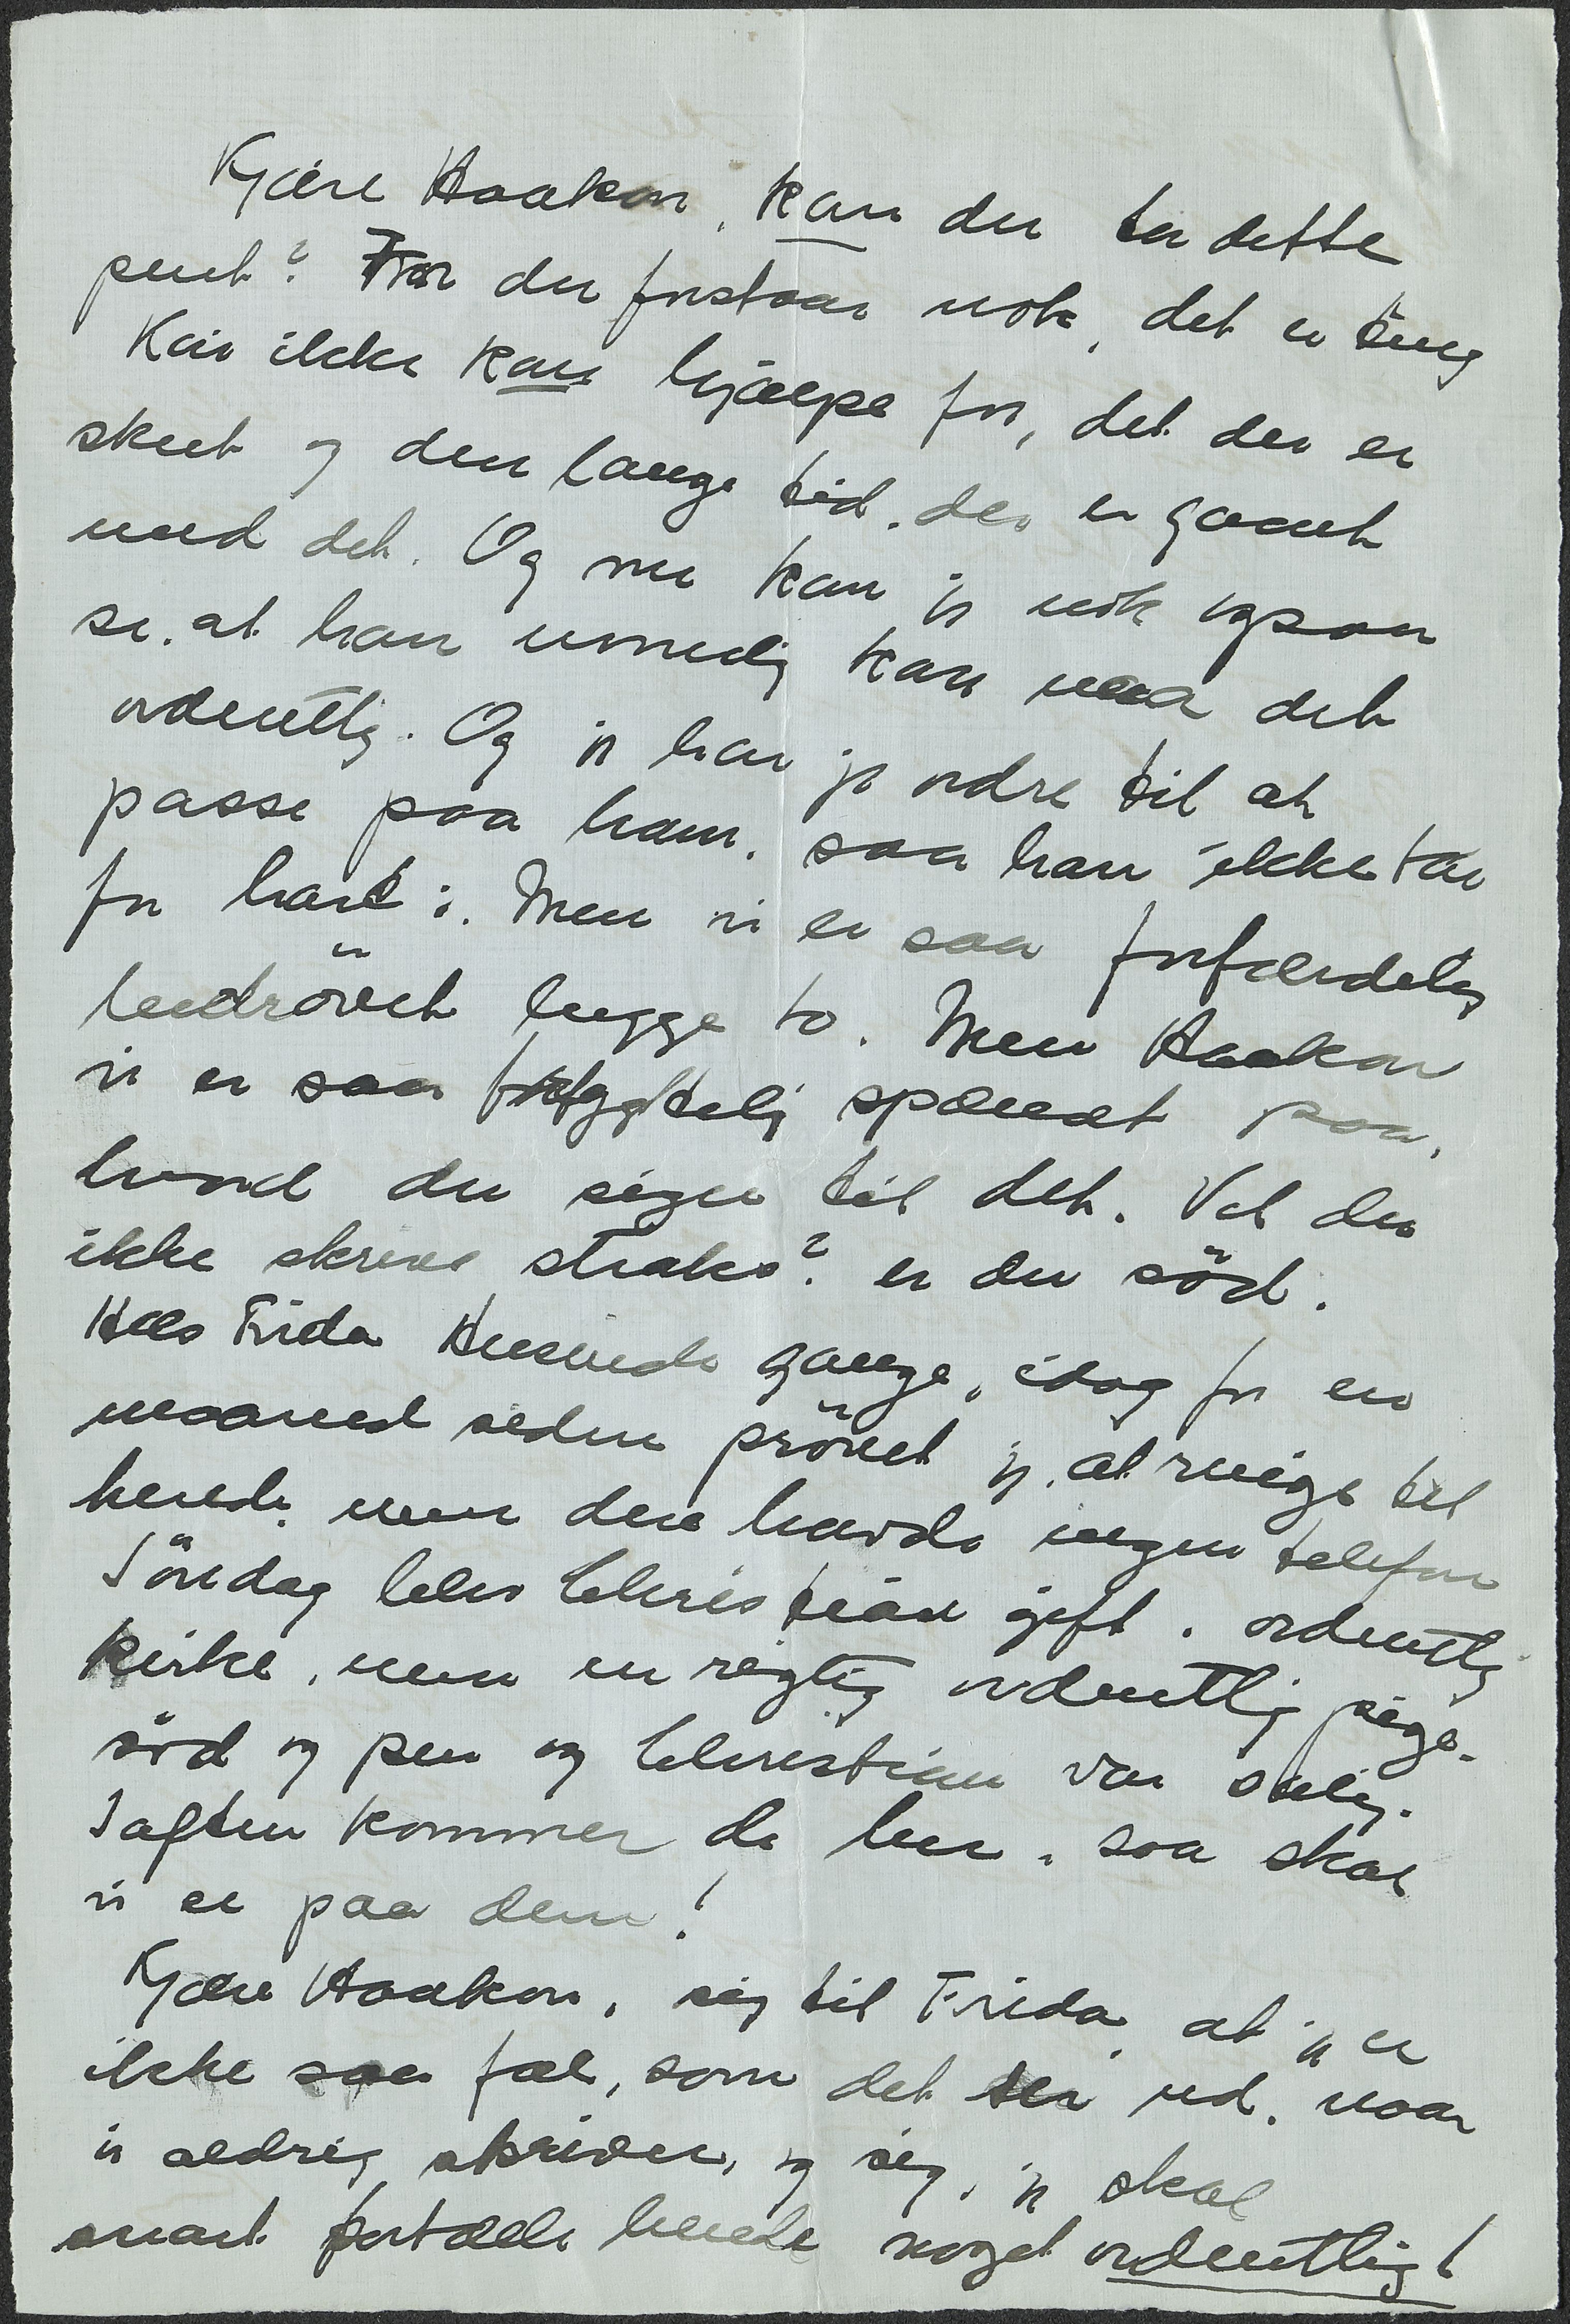 Kjære Haakon, kan du ta dette
pent? For du forstaar nok, det er ting
Kai ikke kan hjælpe for, det der er
skeet og den lange tid, der er gaaet
med det. Og nu kan jeg nok ogsaa
se, at han umulig kan naa det
ordentlig. Og jeg har jo ordre til at
passe paa ham, saa han ikke tar
for hardt i. Men vi er saa forfærdelig
bedrövet begge to. Men Haakon
vi er saa frygtelig spændt paa,
hvad du siger til det. Vil du
ikke skrive straks? er du söd.
Hils Frida tusinde gange, idag for en
maaned siden prövet jeg at ringe til
hende, men den havde ingen telefon
Söndag blev Christian gift. ordentlig
kirke, men en rigtig ordentlig pige.
söd og pen og Christian var salig.
Iaften kommer de her, saa skal
vi se paa dem!
Kjære Haakon, sig til Frida, at jeg er
ikke saa fæl, som det ser ud, naar
jeg aldrig skriver, og sig, jeg skal
snart fortælle hende noget ordentligt